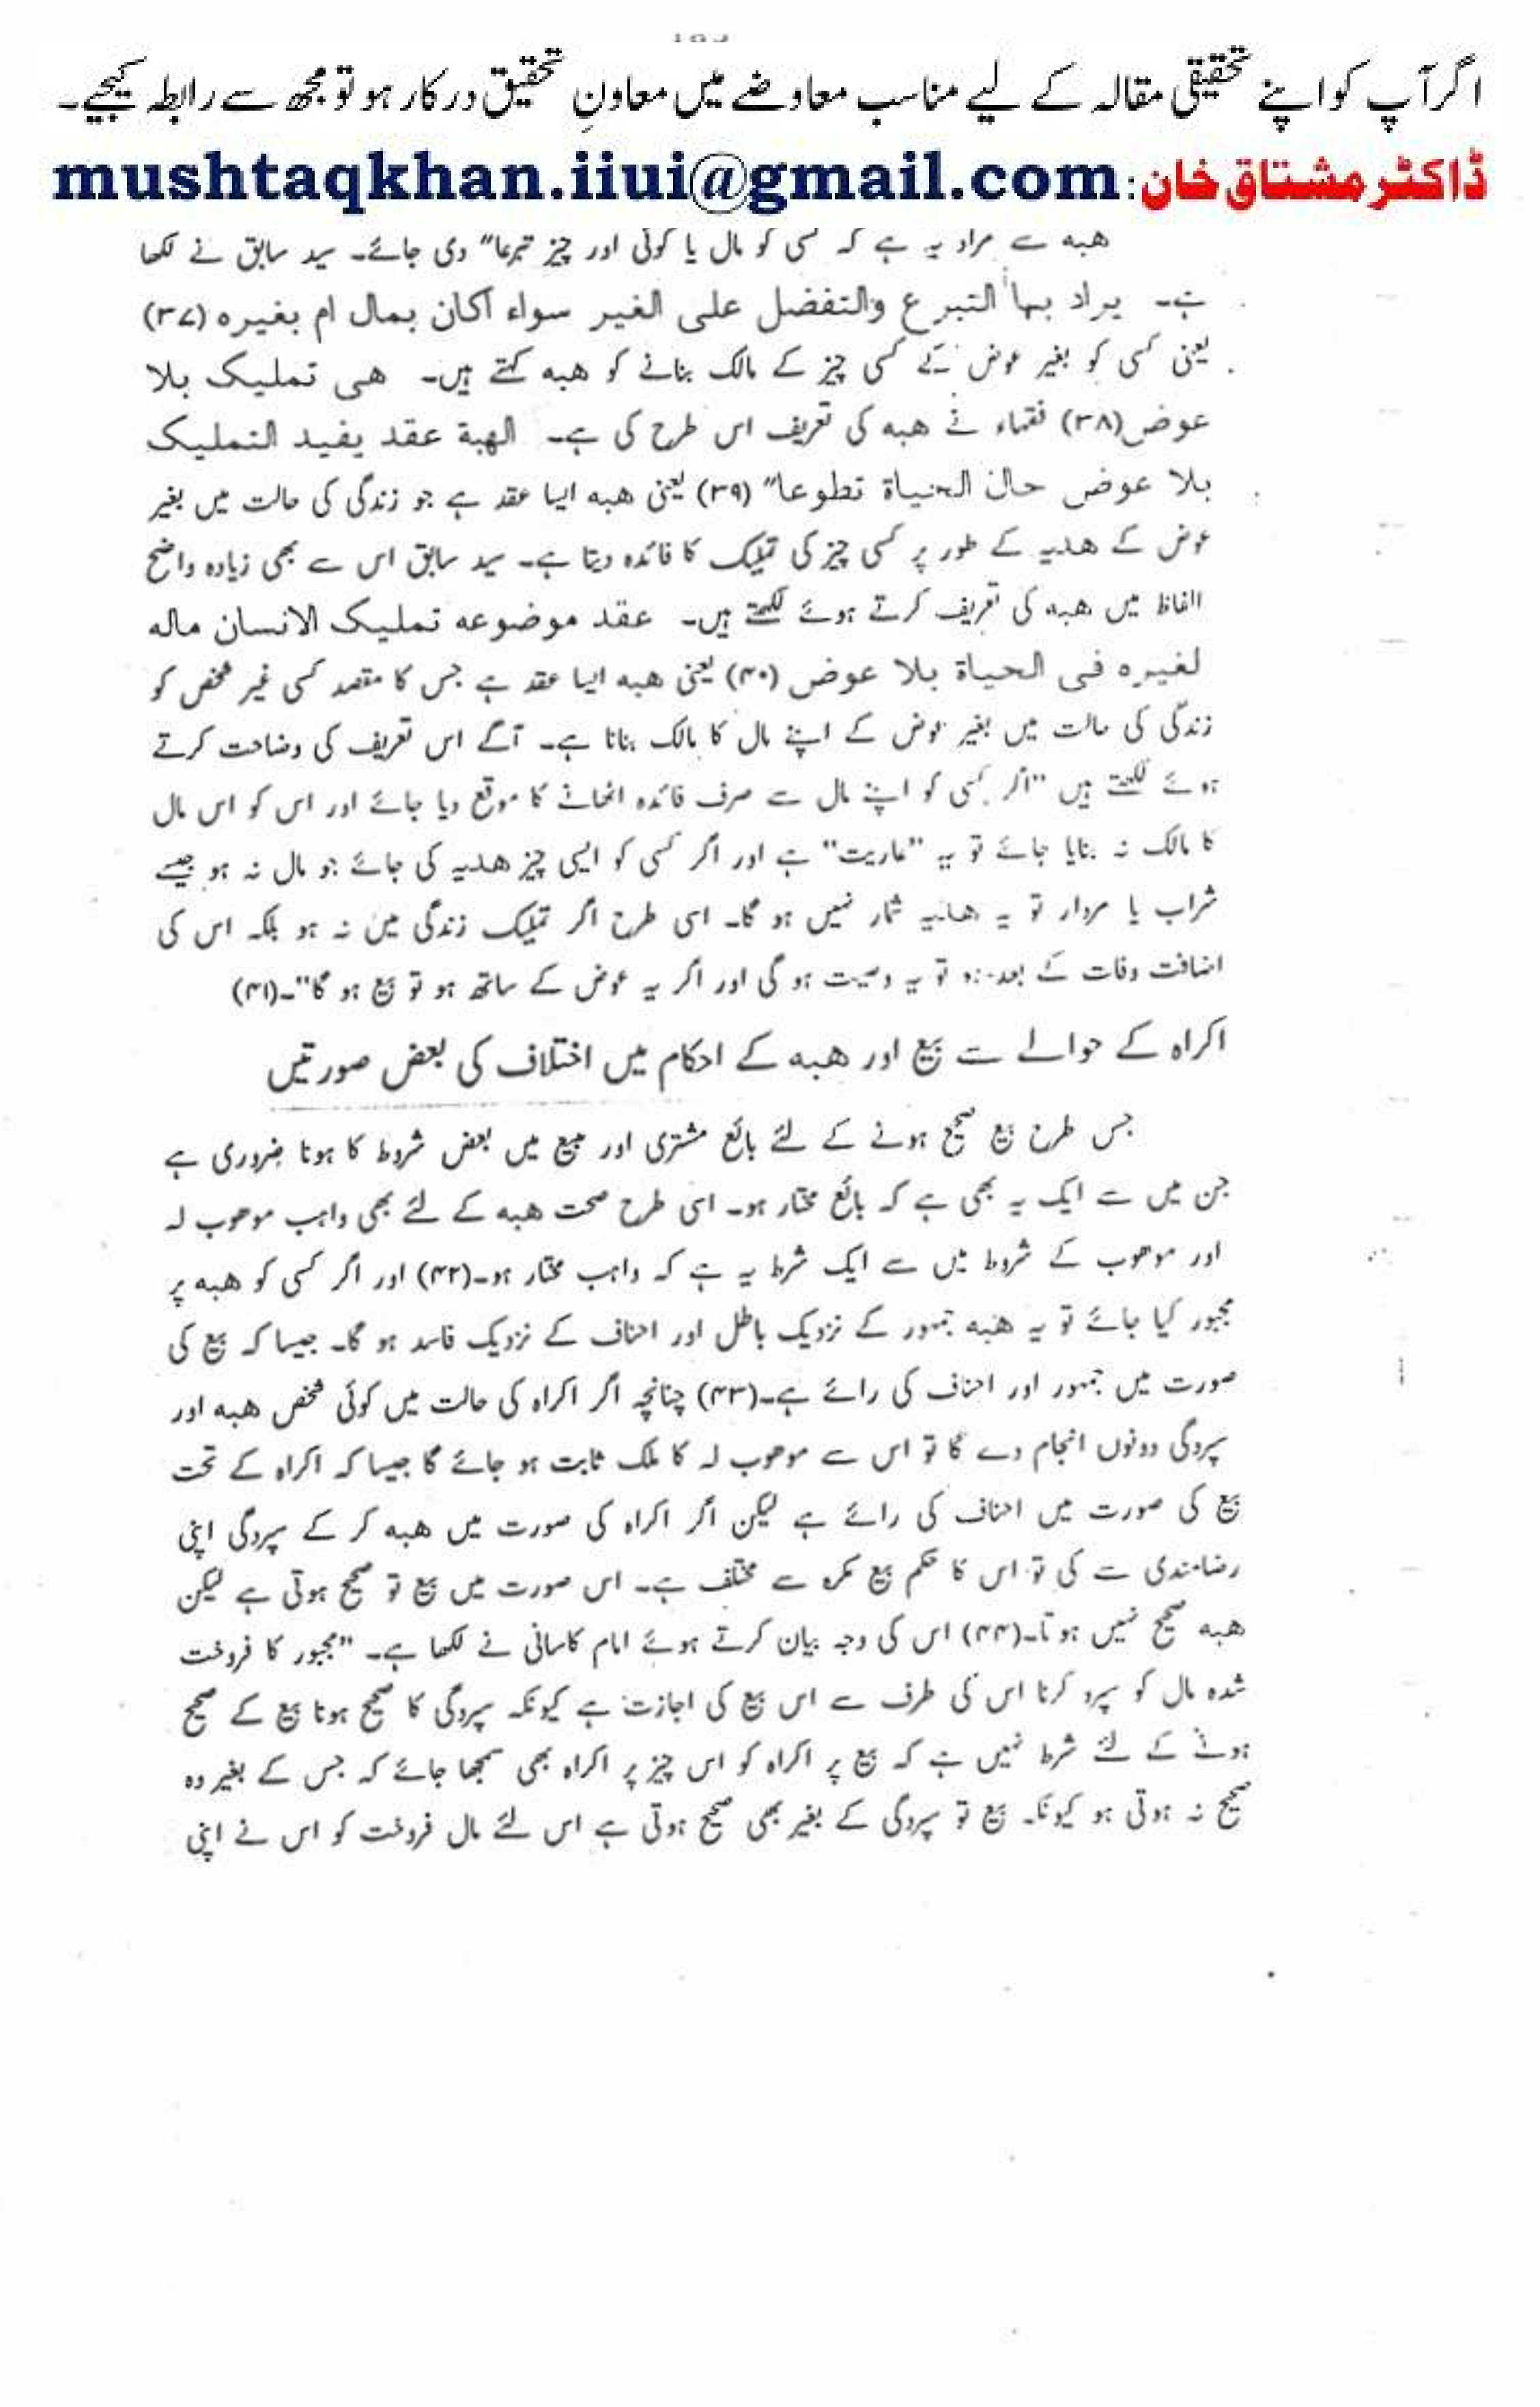 اگر آپ کو اپنے تحقیقی مقالہ کے لیے مناسب معاوضے میں معاونِ تحقیق درکار ہو تو مجھ سے رابطہ کیجیے۔
ڈاکٹر مشتاق خان: mushtaqkhan.iiui@gmail.com
ھبہ سے مراد یہ ہے کہ کسی کو مال یا کوئی اور چیز تبرعا" دی جائے۔ سید سابق نے لکھا
ہے۔ یراد بہا التبرع والتفضل علی الغیر سواء اکان بمال ام بغیرہ (۳۷)
یعنی کسی کو بغیر عوض کے کسی چیز کے مالک بنانے کو ھبہ کہتے ہیں۔ ھی تملیک بلا
عوض(۳۸) فقہاء نے ھبہ کی تعریف اس طرح کی ہے۔ الھبة عقد یفید التملیک
بلا عوض حال الحیاة تطوعا" (۳۹) یعنی ھبہ ایسا عقد ہے جو زندگی کی حالت میں بغیر
عوض کے ھدیہ کے طور پر کسی چیز کی تملیک کا فائدہ دیتا ہے۔ سید سابق اس سے بھی زیادہ واضح
الفاظ میں ھبہ کی تعریف کرتے ہوئے لکھتے ہیں۔ عقد موضوعہ تملیک الانسان مالہ
لغیرہ فی الحیاة بلا عوض (۴۰) یعنی ھبہ ایسا عقد ہے جس کا مقصد کسی غیر شخص کو
زندگی کی حالت میں بغیر عوض کے اپنے مال کا مالک بنانا ہے۔ آگے اس تعریف کی وضاحت کرتے
ہوئے لکھتے ہیں "اگر کسی کو اپنے مال سے صرف فائدہ اٹھانے کا موقع دیا جائے اور اس کو اس مال
کا مالک نہ بنایا جائے تو یہ "عاریت" ہے اور اگر کسی کو ایسی چیز ھدیہ کی جائے جو مال نہ ہو جیسے
شراب یا مردار تو یہ ھدیہ شمار نہیں ہو گا۔ اسی طرح اگر تملیک زندگی میں نہ ہو بلکہ اس کی
اضافت وفات کے بعد ہو تو یہ وصیت ہو گی اور اگر یہ عوض کے ساتھ ہو تو بیع ہو گا"۔(۴۱)
اکراہ کے حوالے سے بیع اور ھبہ کے احکام میں اختلاف کی بعض صورتیں
جس طرح بیع صحیح ہونے کے لئے بائع مشتری اور مبیع میں بعض شروط کا ہونا ضروری ہے
جن میں سے ایک یہ بھی ہے کہ بائع مختار ہو۔ اسی طرح صحت ھبہ کے لئے بھی واہب موھوب لہ
اور موھوب کے شروط میں سے ایک شرط یہ ہے کہ واہب مختار ہو۔(۴۲) اور اگر کسی کو ھبہ پر
مجبور کیا جائے تو یہ ھبہ جمہور کے نزدیک باطل اور احناف کے نزدیک فاسد ہو گا۔ جیسا کہ بیع کی
صورت میں جمہور اور احناف کی رائے ہے۔(۴۳) چنانچہ اگر اکراہ کی حالت میں کوئی شخص ھبہ اور
سپردگی دونوں انجام دے گا تو اس سے موھوب لہ کا ملک ثابت ہو جائے گا جیسا کہ اکراہ کے تحت
بیع کی صورت میں احناف کی رائے ہے لیکن اگر اکراہ کی صورت میں ھبہ کر کے سپردگی اپنی
رضامندی سے کی تو اس کا حکم بیع مکرہ سے مختلف ہے۔ اس صورت میں بیع تو صحیح ہوتی ہے لیکن
ھبہ صحیح نہیں ہوتا۔(۴۴) اس کی وجہ بیان کرتے ہوئے امام کاسانی نے لکھا ہے۔ "مجبور کا فروخت
شدہ مال کو سپرد کرنا اس کی طرف سے اس بیع کی اجازت ہے کیونکہ سپردگی کا صحیح ہونا بیع کے صحیح
ہونے کے لئے شرط نہیں ہے کہ بیع پر اکراہ کو اس چیز پر اکراہ بھی سمجھا جائے کہ جس کے بغیر وہ
صحیح نہ ہوتی ہو کیونکہ بیع تو سپردگی کے بغیر بھی صحیح ہوتی ہے اس لئے مال فروخت کو اس نے اپنی